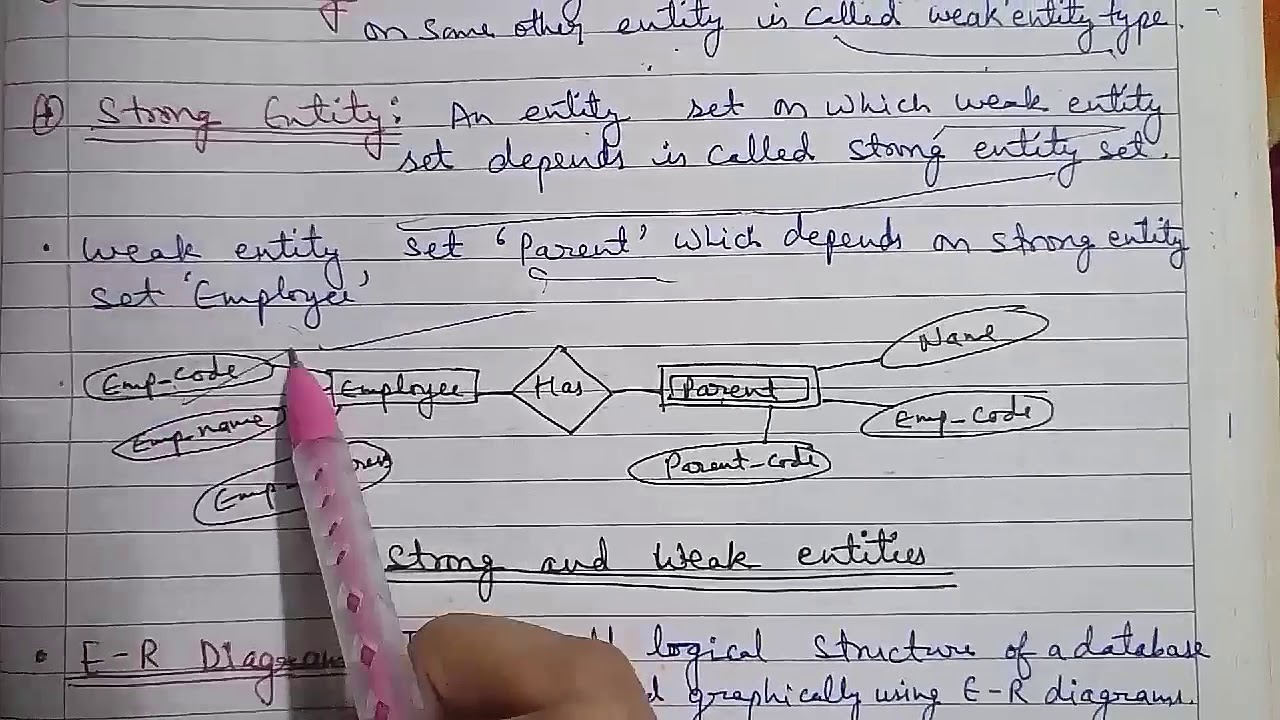 on some other entity is called weak entity type.
④ Strong Entity: An entity set on which weak entity
set depends is called strong entity set.
• Weak entity set 'Parent' which depends on strong entity
set 'Employee'
Name
Emp-code Employee Has Parent
Emp-name Emp-Code
Parent-code
Emp
Strong and Weak entities
• E-R Diagram logical structure of a database
graphically using E-R diagrams.